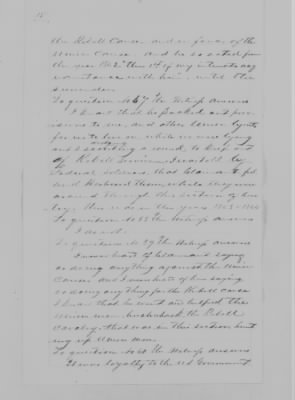 the Rebell Cause and in favor of the
Union Cause and he so acted from
the year 1862 thru 14 of my intimate acq
uaintance with him until the
surrender
To question No 57 the Witness answers
I know that he packed up pro
visions to me and other Union
for us to live on while we were lying
out and scouting around to keep out
of Rebell Service I was told by
Federal soldiers that fed
and them while they were
around through this section of coun
try this was in the years 1863 & 1864
To question No 58 the witness answers
I do not.
To question No 59 the Witness answers
I never heard of saying
or doing anything against the Union
Cause and I never heard of him saying
or doing anything for the Rebell cause
I know that he went and helped the
Union men bushwhack the Rebell
Cavalry that was in this section hunt
ing up Union men.
To question No 60 the Witness answers
It was loyalty to the U.S. Government